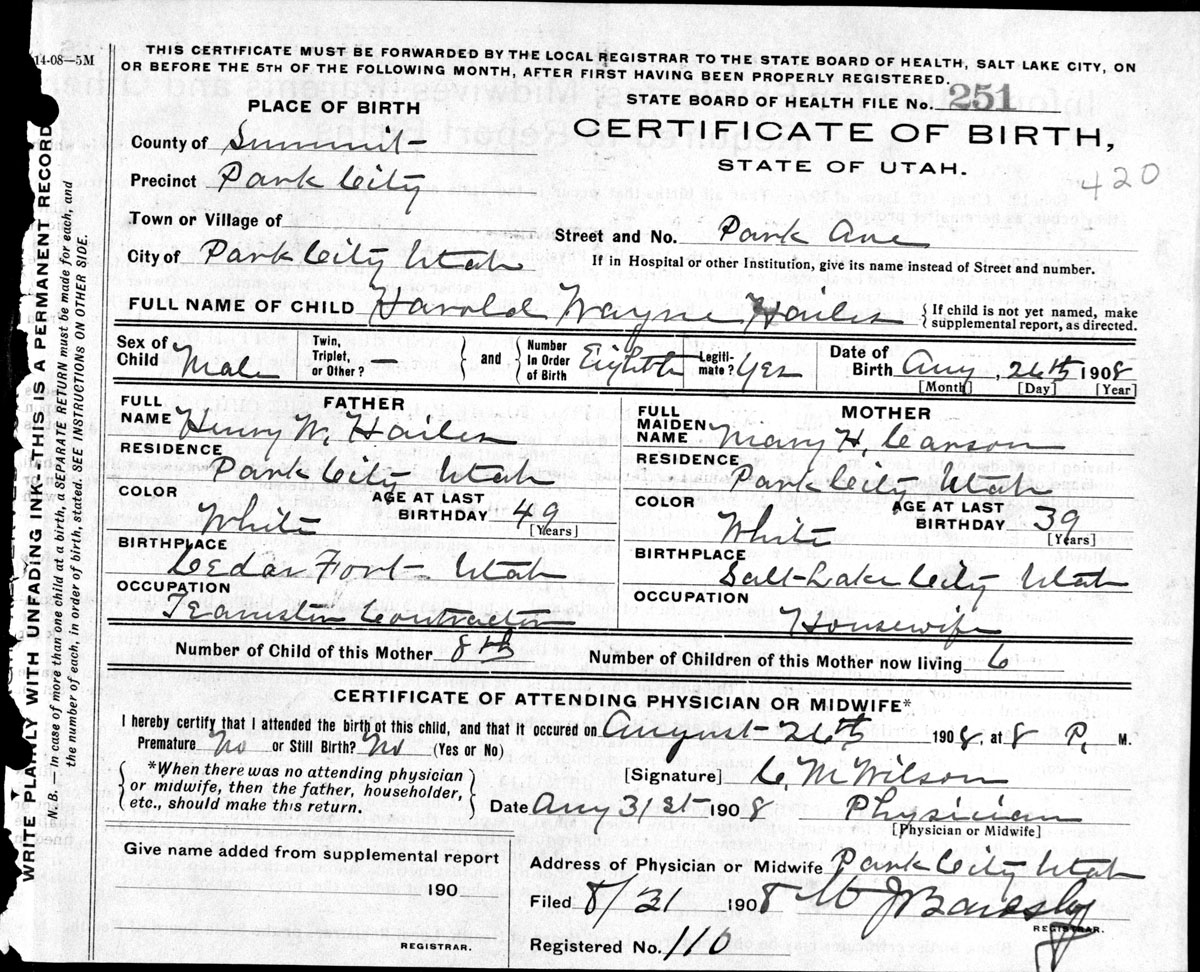 14-08—5M
THIS CERTIFICATE MUST BE FORWARDED BY THE LOCAL REGISTRAR TO THE STATE BOARD OF HEALTH, SALT LAKE CITY, ON
OR BEFORE THE 5TH OF THE FOLLOWING MONTH, AFTER FIRST HAVING BEEN PROPERLY REGISTERED.
PLACE OF BIRTH
STATE BOARD OF HEALTH FILE No. 251
County of Summit
CERTIFICATE OF BIRTH,
STATE OF UTAH.
420
Precinct Park City
Town or Village of
Street and No. Park Ave
City of Park City Utah
If in Hospital or other Institution, give its name instead of Street and number.
FULL NAME OF CHILD Harold Wayne Hailes
{ If child is not yet named, make
supplemental report, as directed.
Sex of Child Male
Twin, Triplet, or Other? — } and { Number In Order of Birth Eighth
Legiti-mate? Yes
Date of Birth Aug, 26th 1908
[Month] [Day] [Year]
FATHER
FULL NAME Henry W. Hailes
RESIDENCE
Park City Utah
COLOR White
AGE AT LAST BIRTHDAY 49
[Years]
BIRTHPLACE
Cedar Fort Utah
OCCUPATION
Teamster Contractor
MOTHER
FULL MAIDEN NAME Mary H. Carson
RESIDENCE
Park City Utah
COLOR White
AGE AT LAST BIRTHDAY 39
[Years]
BIRTHPLACE
Salt Lake City Utah
OCCUPATION
Housewife
Number of Child of this Mother 8th
Number of Children of this Mother now living 6
CERTIFICATE OF ATTENDING PHYSICIAN OR MIDWIFE*
I hereby certify that I attended the birth of this child, and that it occured on August 26th 1908, at 8 P. M.
Premature No or Still Birth? No (Yes or No)
*When there was no attending physician
or midwife, then the father, householder,
etc., should make this return.
[Signature] C. M Wilson
Date Aug 31st 1908 Physician
[Physician or Midwife]
Give name added from supplemental report
190
REGISTRAR.
Address of Physician or Midwife Park City Utah
Filed 8/31 1908
REGISTRAR.
Registered No. 110
WRITE PLAINLY WITH UNFADING INK—THIS IS A PERMANENT RECORD
N. B.—In case of more than one child at a birth, a SEPARATE RETURN must be made for each, and
the number of each, in order of birth, stated. SEE INSTRUCTIONS ON OTHER SIDE.